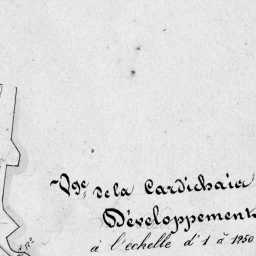 Vge de la Cardichaier
Développement
à l'echelle d'1 à 1950